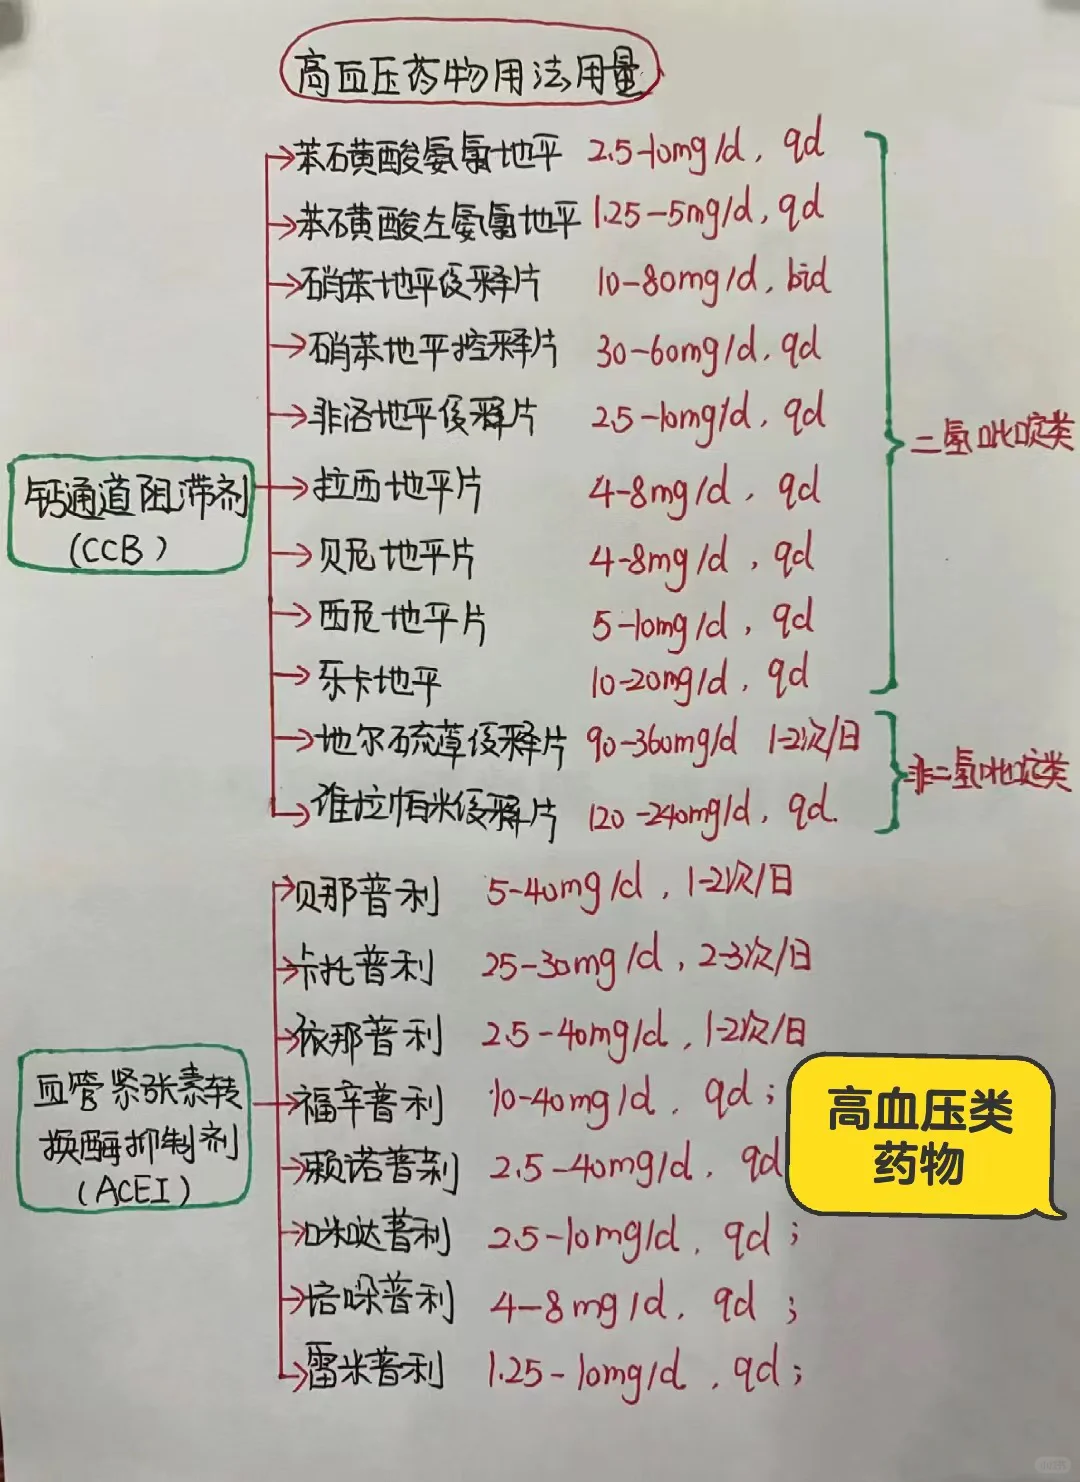 高血压药物用法用量
苯石黄酸氨氯地平 2.5-10mg/d, qd
苯石黄酸左氨氯地平 1.25-5mg/d, qd
硝苯地平缓释片 10-80mg/d, bid
硝苯地平控释片 30-60mg/d, qd
非洛地平缓释片 2.5-10mg/d, qd
二氢吡啶类
钙通道阻滞剂
(CCB)
拉西地平片 4-8mg/d, qd
贝尼地平片 4-8mg/d, qd
西尼地平片 5-10mg/d, qd
乐卡地平 10-20mg/d, qd
地尔硫䓬缓释片 90-360mg/d 1-2次/日
非二氢吡啶类
维拉帕米缓释片 120-240mg/d, qd.
贝那普利 5-40mg/d, 1-2次/日
卡托普利 25-30mg/d, 2-3次/日
依那普利 2.5-40mg/d, 1-2次/日
血管紧张素转
换酶抑制剂
(ACEI)
福辛普利 10-40mg/d, qd;
赖诺普利 2.5-40mg/d, qd
咪哒普利 2.5-10mg/d, qd;
培哚普利 4-8mg/d, qd;
雷米普利 1.25-10mg/d, qd;
高血压类
药物